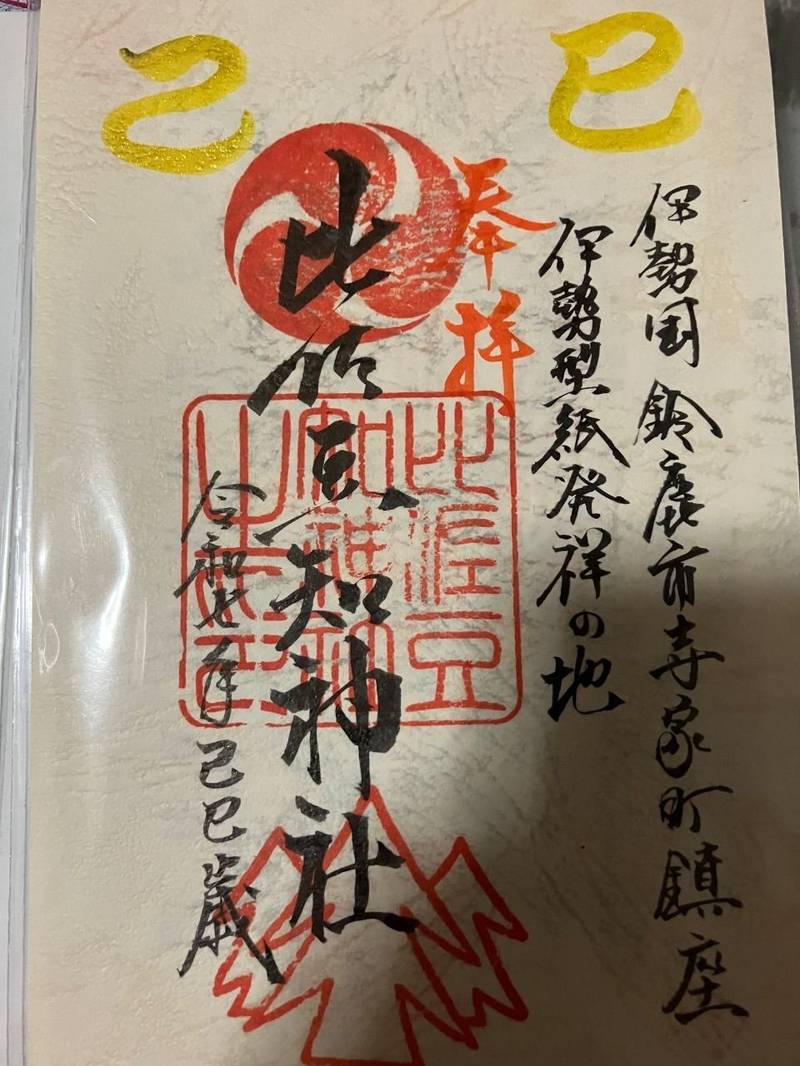 己 巳
伊勢国 鈴鹿市寺家町鎮座
伊勢型紙発祥の地
奉拝
比佐豆知神社
令和七年己巳歳
比佐豆